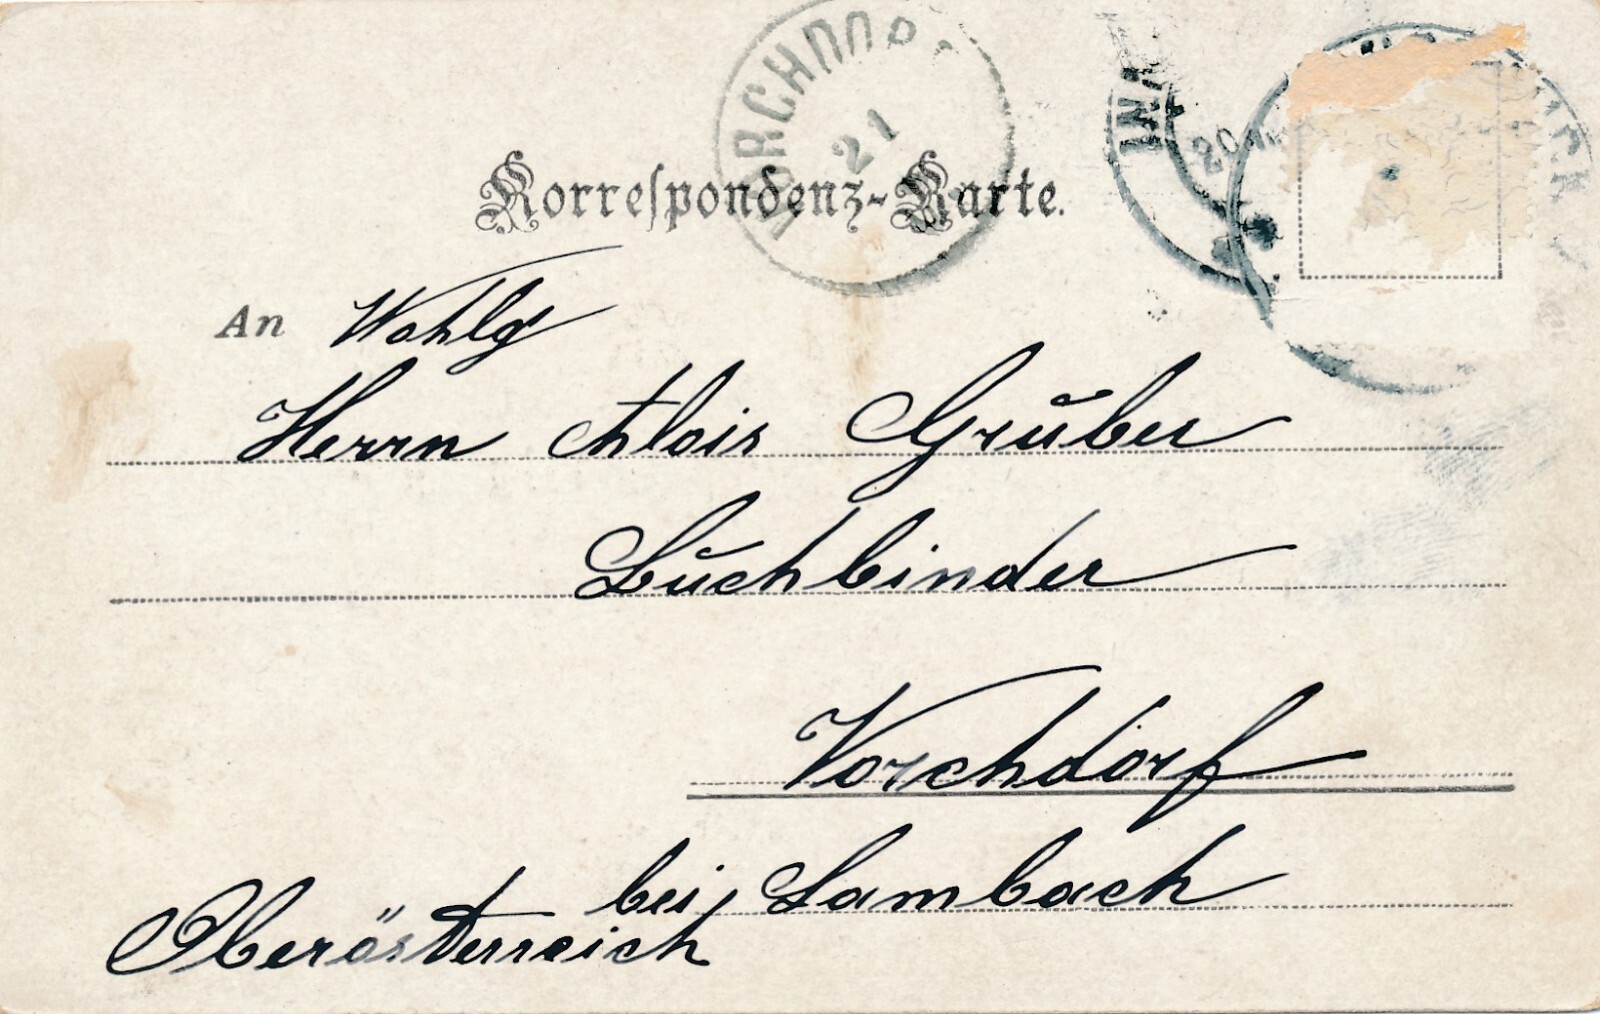 VORCHDORF
21
20
Korrespondenz-Karte.
An Wohlg
Herrn Alois Gruber
Buchbinder
Vorchdorf
bei Lambach
Oberösterreich